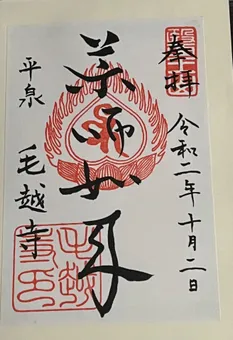 奉拝
令和二年十月二日
薬師如来
平泉
毛越寺
毛越寺印